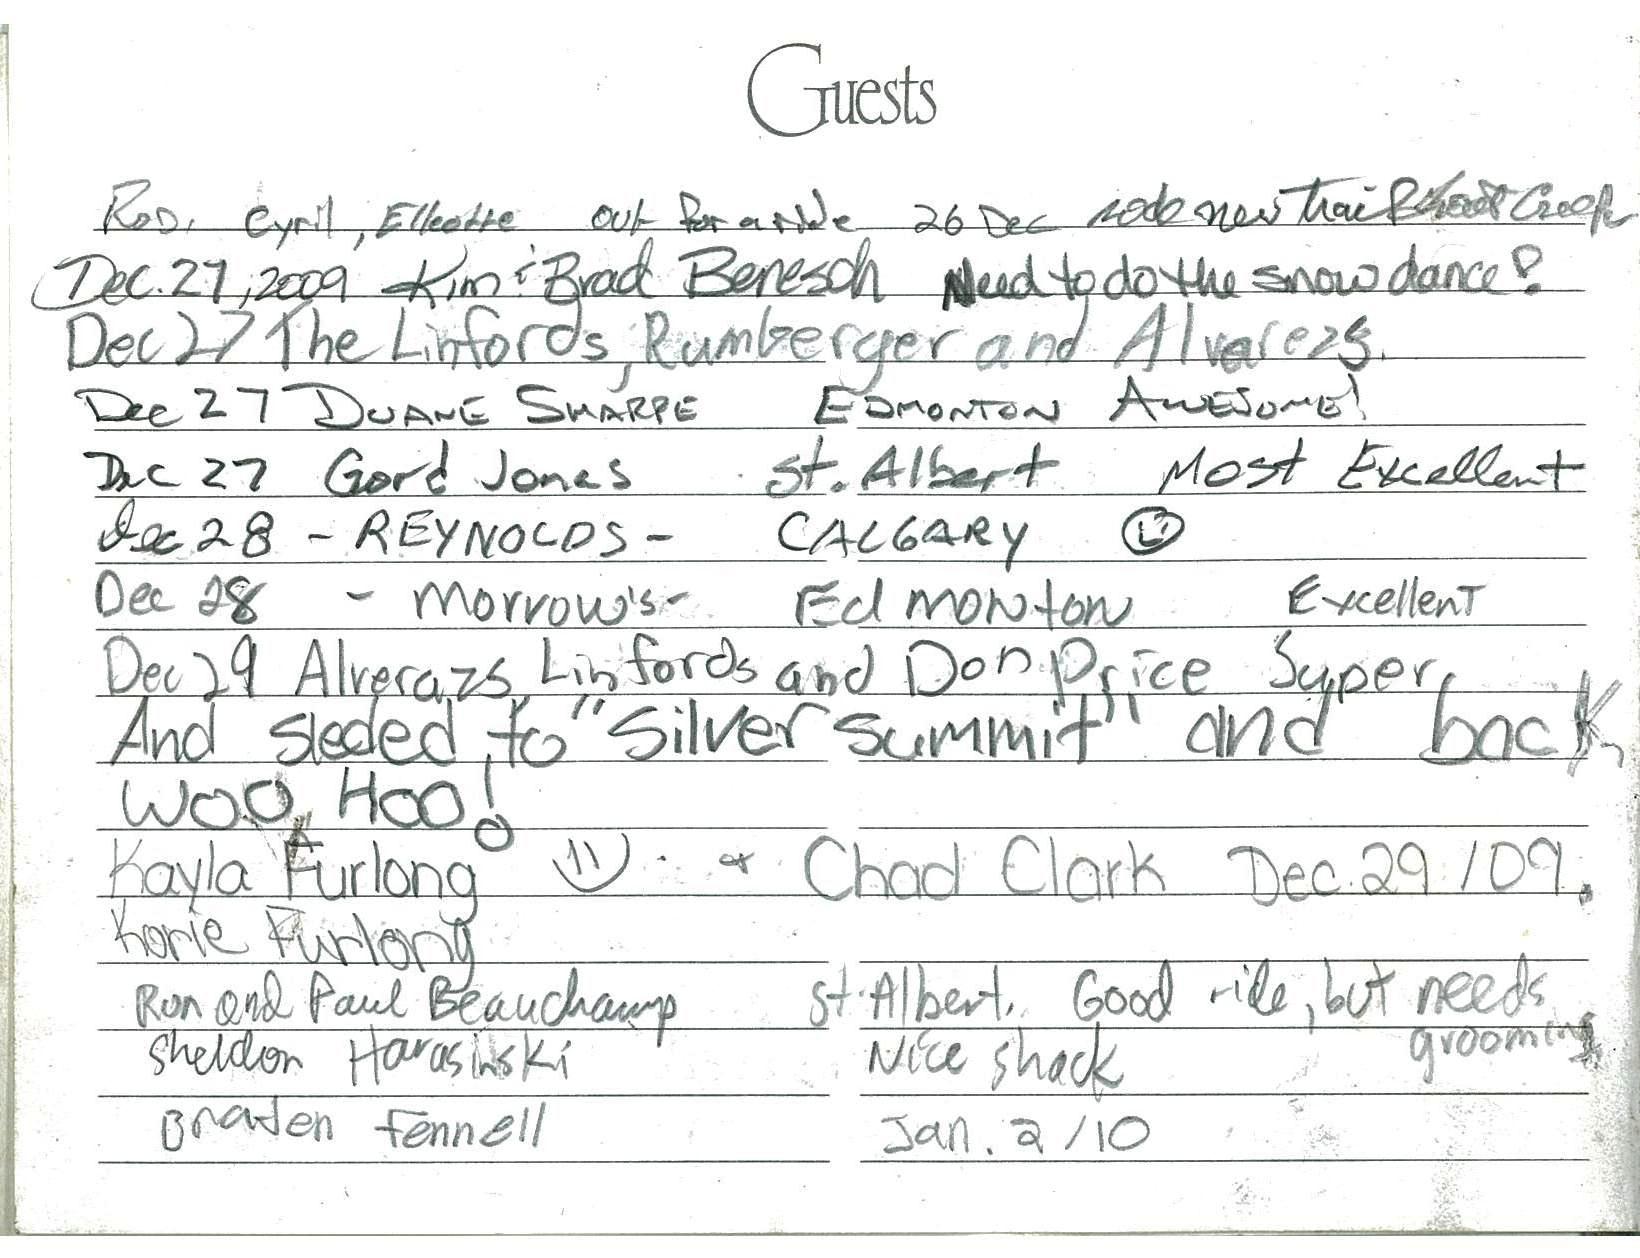 Guests
Rod, Cyril, out for a ride 26 Dec rode new Trail Creek
Dec. 27, 2009 Kim & Brad Benesch Need to do the snow dance?
Dec 27 The Linfords, Rumberger and Alvarezs.
Dec 27 DUANE SHARPE EDMONTON AWESOME!
Dec 27 Gord Jones St. Albert Most Excellent
Dec 28 - REYNOLDS - CALGARY
Dec 28 - Morrow's - EdMONTON ExcellenT
Dec 29 Alverazs, Linfords and Don Price Super
And sleded to "Silver Summit" and back
WOO HOO!
Kayla Furlong & Chad Clark Dec. 29 / 09.
Korie Furlong
Ron and Paul Beauchamp St. Albert. Good ride, but needs
grooming
Sheldon Harasinski Nice shack
Braden Fennell Jan. 2 / 10